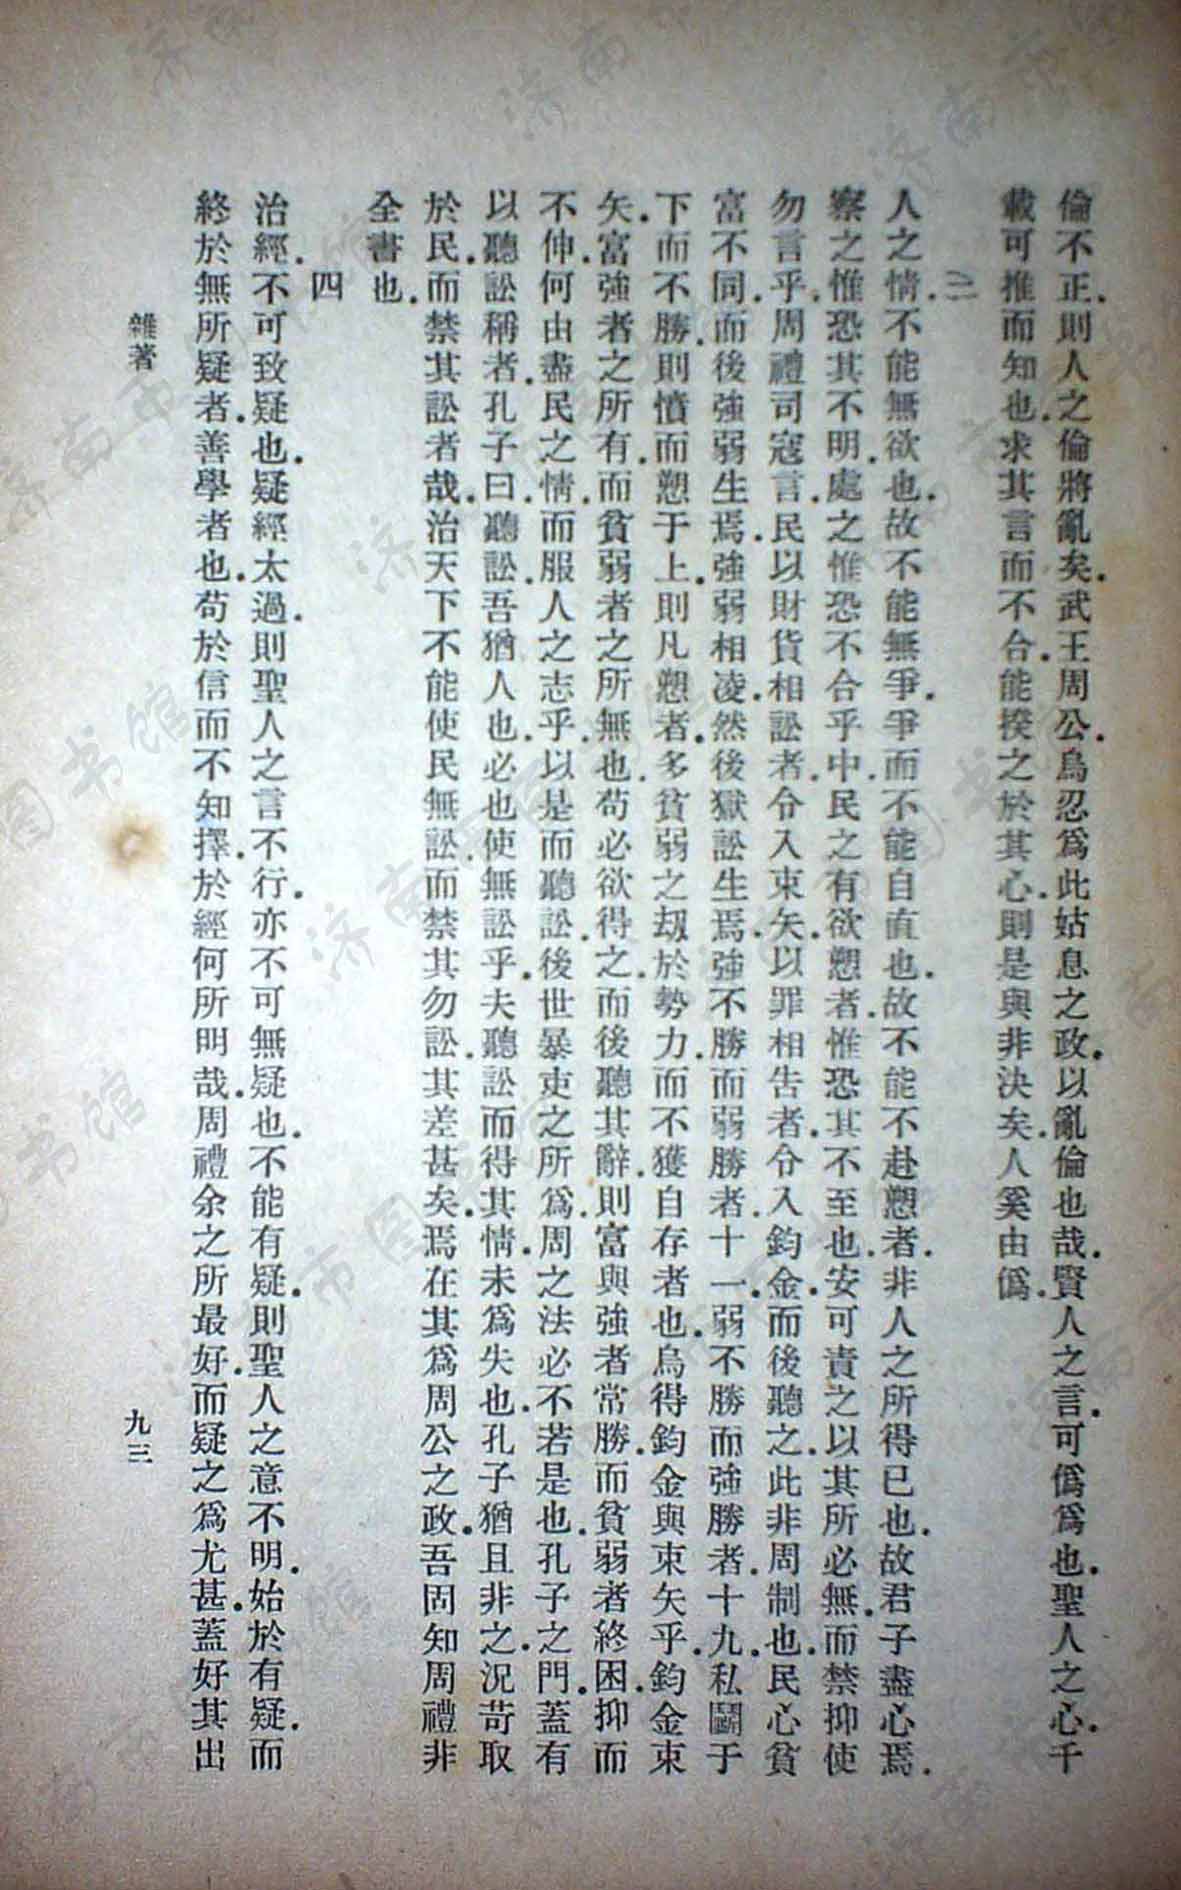 倫不正.則人之倫將亂矣.武王周公.烏忍爲此姑息之政.以亂倫也哉.賢人之言.可僞爲也.聖人之心.千
載可推而知也.求其言而不合.能揆之於其心.則是與非決矣.人奚由僞.
三
人之情.不能無欲也.故不能無爭.爭而不能自直也.故不能不赴愬者.非人之所得已也.故君子盡心焉.
察之惟恐其不明.處之惟恐不合乎中.民之有欲愬者.惟恐其不至也.安可責之以其所必無.而禁抑使
勿言乎.周禮司寇言.民以財貨相訟者.令入束矢.以罪相告者.令入鈞金.而後聽之.此非周制也.民心貧
富不同.而後強弱生焉.強弱相凌.然後獄訟生焉.強不勝而弱勝者.十一.弱不勝而強勝者.十九.私鬬于
下而不勝.則憤而愬于上.則凡愬者.多貧弱之刼於勢力.而不獲自存者也.烏得鈞金與束矢乎.鈞金束
矢.富強者之所有.而貧弱者之所無也.苟必欲得之.而後聽其辭.則富與強者常勝.而貧弱者終困.抑而
不伸.何由盡民之情.而服人之志乎.以是而聽訟.後世暴吏之所爲.周之法必不若是也.孔子之門.蓋有
以聽訟稱者.孔子曰.聽訟.吾猶人也.必也使無訟乎.夫聽訟而得其情.未爲失也.孔子猶且非之.况苛取
於民.而禁其訟者哉.治天下不能使民無訟.而禁其勿訟.其差甚矣.焉在其爲周公之政.吾固知周禮非
全書也.
四
治經.不可致疑也.疑經太過.則聖人之言不行.亦不可無疑也.不能有疑.則聖人之意不明.始於有疑.而
終於無所疑者.善學者也.苟於信而不知擇.於經何所明哉.周禮余之所最好.而疑之爲尤甚.蓋好其出
雜著
九三
济南市图书馆